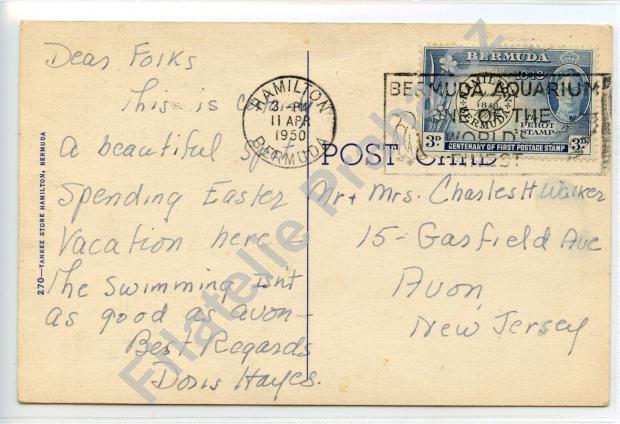 Dear Folks
This is
a beautiful spot
Spending Easter
Vacation here
The Swimming Isn't
as good as avon-
Best Regards
Doris Hayes.
270—YANKEE STORE HAMILTON, BERMUDA
HAMILTON
3-PM
11 APR
1950
BERMUDA
POST CARD
BERMUDA
1948
1848
PEROT
STAMP
3D
CENTENARY OF FIRST POSTAGE STAMP
3D
BERMUDA AQUARIUM
ONE OF THE
WORLD'S
Mr + Mrs. Charles H Walker
15- Garfield Ave
Avon,
New Jersey